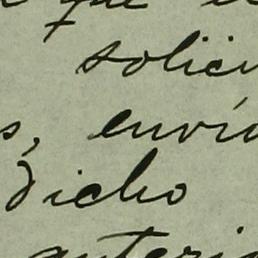 que
solici
s, envío
dicho
anteri